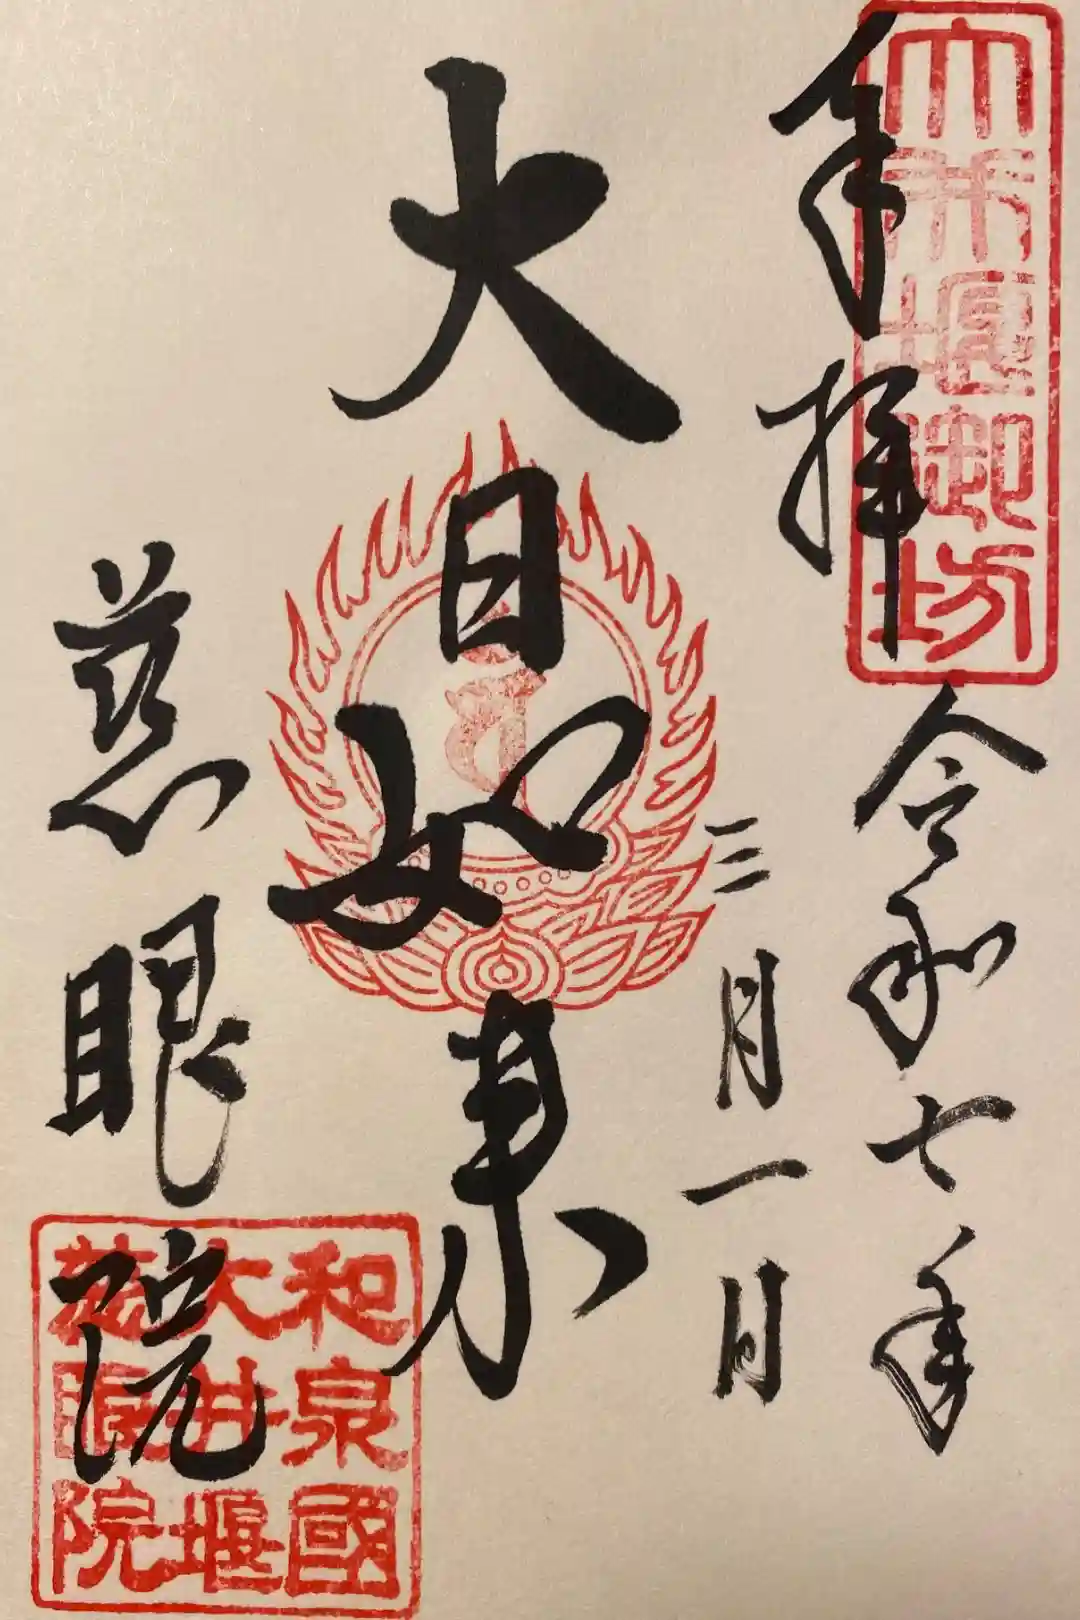 大井堰御坊
奉拝
令和七年
三月一日
大日如来
慈眼院
和泉國
大井堰
慈眼院